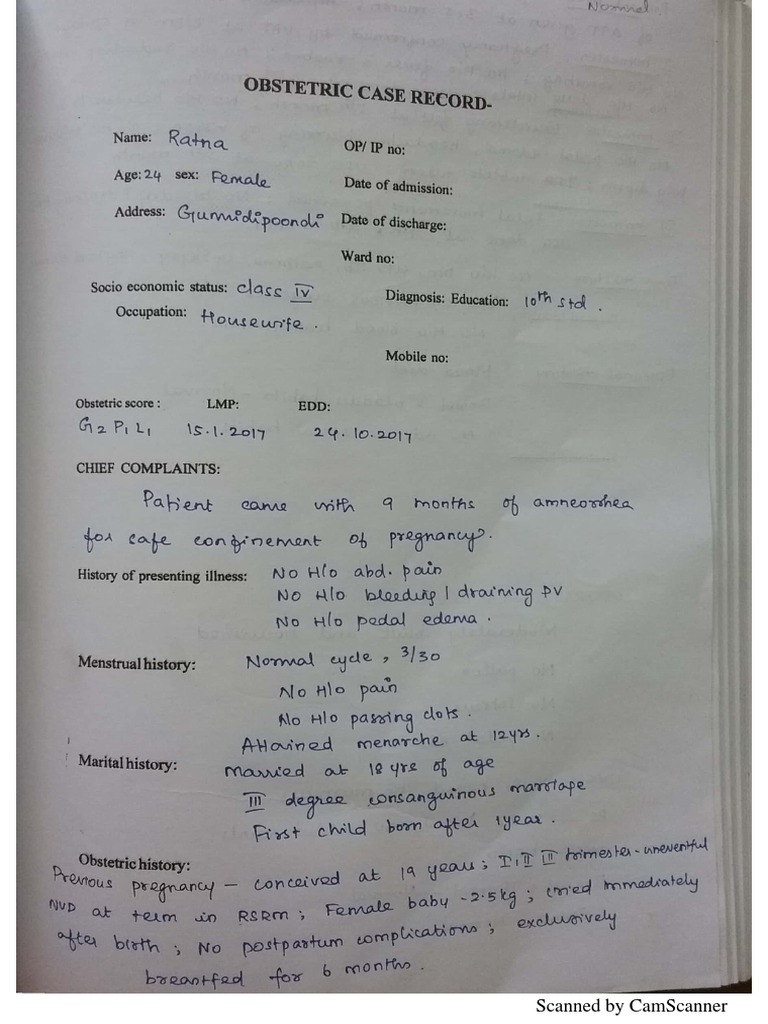 Normal.
OBSTETRIC CASE RECORD-
Name: Ratna
OP/ IP no:
Age: 24 sex: Female
Date of admission:
Address: Gummidipoondi
Date of discharge:
Ward no:
Socio economic status: class IV
Diagnosis: Education: 10th std .
Occupation: Housewife .
Mobile no:
Obstetric score : LMP: EDD:
G2 P1 L1 15.1.2017 24.10.2017
CHIEF COMPLAINTS:
Patient came with 9 months of amneorrhea
for safe confinement of pregnancy.
History of presenting illness: NO H/o abd. pain
NO H/o bleeding / draining PV
NO H/o pedal edema .
Menstrual history: Normal cycle , 3/30
No H/o pain
No H/o passing clots .
Attained menarche at 12yrs .
Marital history: Married at 18 yrs of age
III degree consanguinous marriage
First child born after 1year .
Obstetric history:
Previous pregnancy – conceived at 19 years ; I, II III trimester - uneventful
NVD at term in RSRM ; Female baby - 2.5kg ; cried immediately
after birth ; No postpartum complications ; exclusively
breastfed for 6 months .
Scanned by CamScanner